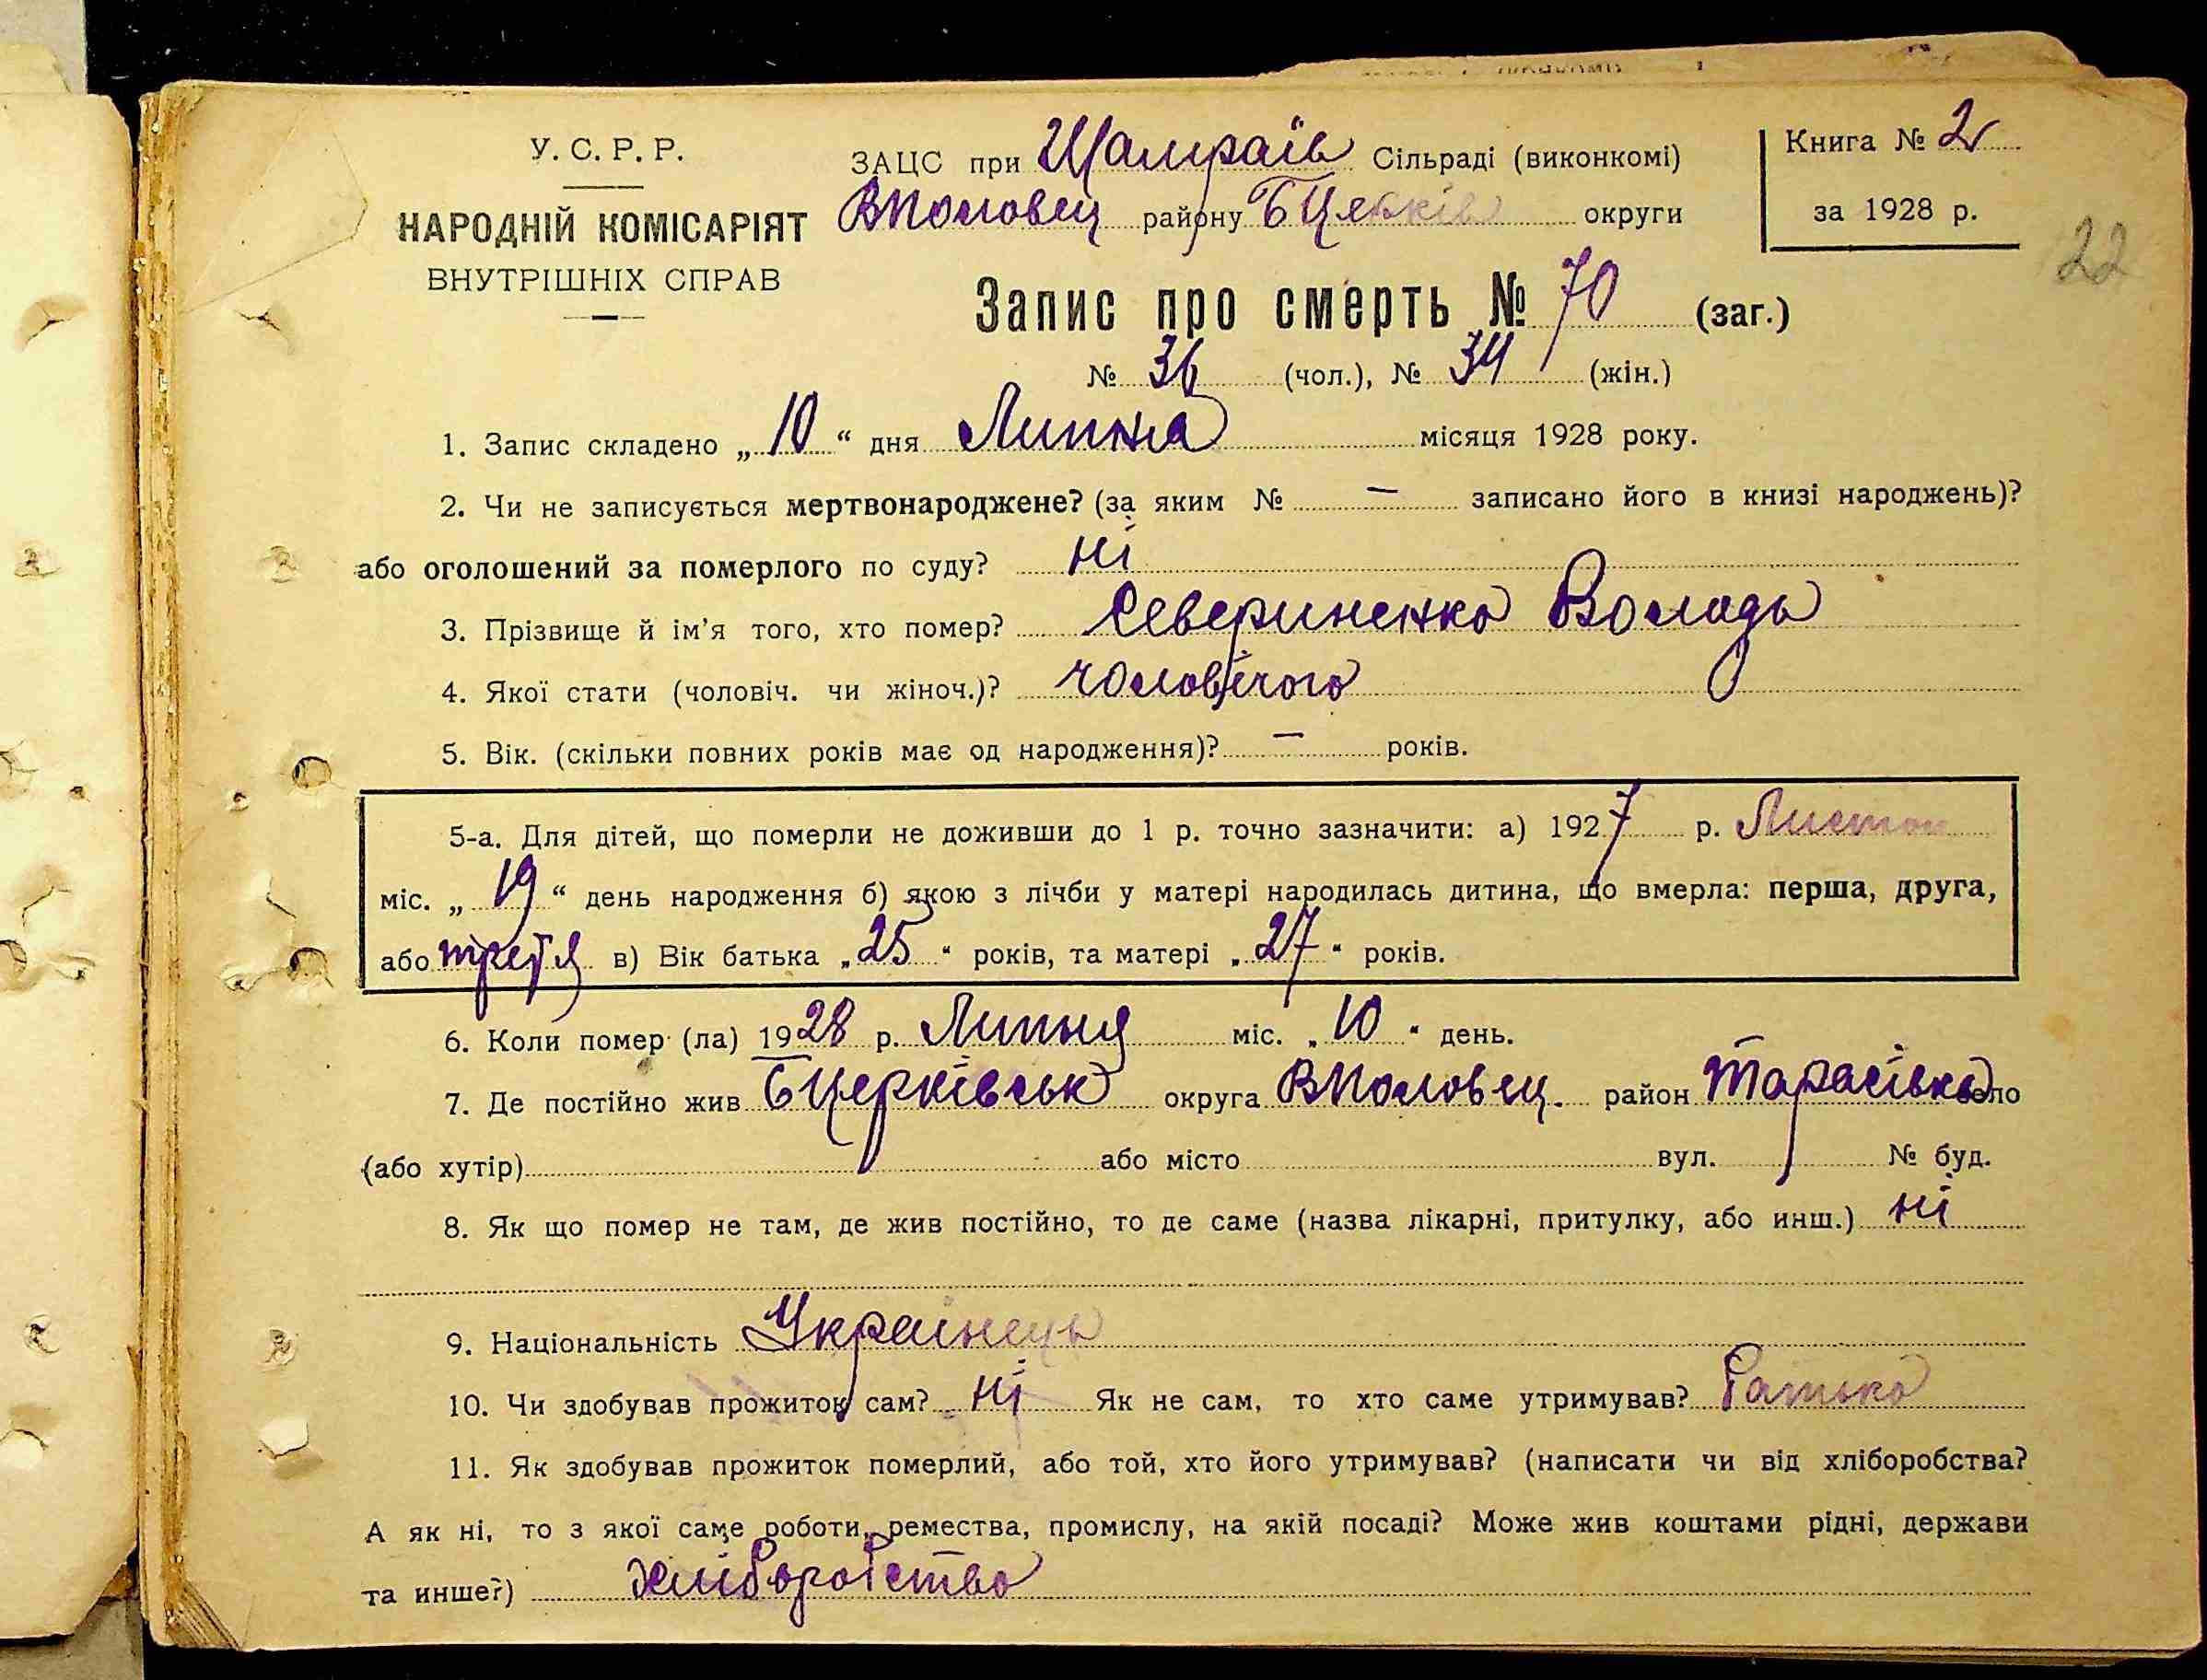 У. С. Р. Р.
НАРОДНІЙ КОМІСАРІЯТ
ВНУТРІШНІХ СПРАВ
ЗАЦС при Шамраїв Сільраді (виконкомі)
ВПоловец району БЦерків округи
Книга № 2
за 1928 р.
22
Запис про смерть № 70 (заг.)
№ 36 (чол.), № 34 (жін.)
1. Запис складено „ 10 “ дня Липня місяця 1928 року.
2. Чи не записується мертвонароджене? (за яким № — записано його в книзі народжень)?
або оголошений за померлого по суду? ні
3. Прізвище й ім’я того, хто помер? Севериненко Володь
4. Якої стати (чоловіч. чи жіноч.)? чоловічого
5. Вік. (скільки повних років має од народження)? — років.
5-а. Для дітей, що померли не доживши до 1 р. точно зазначити: а) 1927 р. Листоп
міс. „ 19 “ день народження б) якою з лічби у матері народилась дитина, що вмерла: перша, друга,
або третя в) Вік батька „ 25 “ років, та матері „ 27 “ років.
6. Коли помер (ла) 1928 р. Липня міс. „ 10 “ день.
7. Де постійно жив БЦерківськ округа ВПоловец. район Тарасівка село
(або хутір) або місто вул. № буд.
8. Як що помер не там, де жив постійно, то де саме (назва лікарні, притулку, або инш.) ні
9. Національність Українець
10. Чи здобував прожиток сам? ні Як не сам, то хто саме утримував? Батько
11. Як здобував прожиток померлий, або той, хто його утримував? (написати чи від хліборобства?
А як ні, то з якої саме роботи, ремества, промислу, на якій посаді? Може жив коштами рідні, держави
та инше?) хліборобство